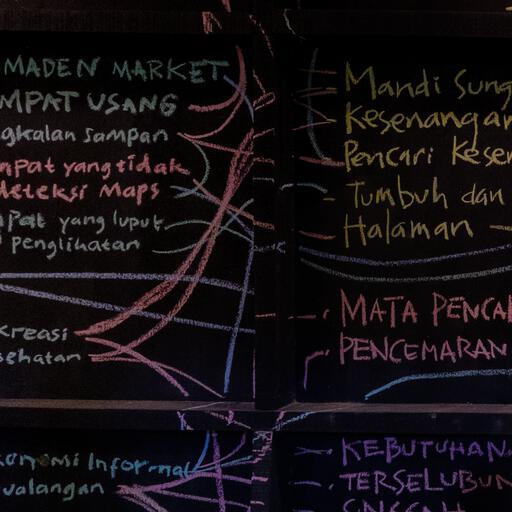 MADEN MARKET
MPAT USANG
ngkalan sampan
mpat yang tidak
deteksi Maps
mpat yang luput
penglihatan
kreasi
sehatan
konomi Informal
valangan
Mandi Sung
Kesenangan
Pencari Kesen
Tumbuh dan
Halaman
MATA PENCA
PENCEMARAN
KEBUTUHAN
TERSELUBUN